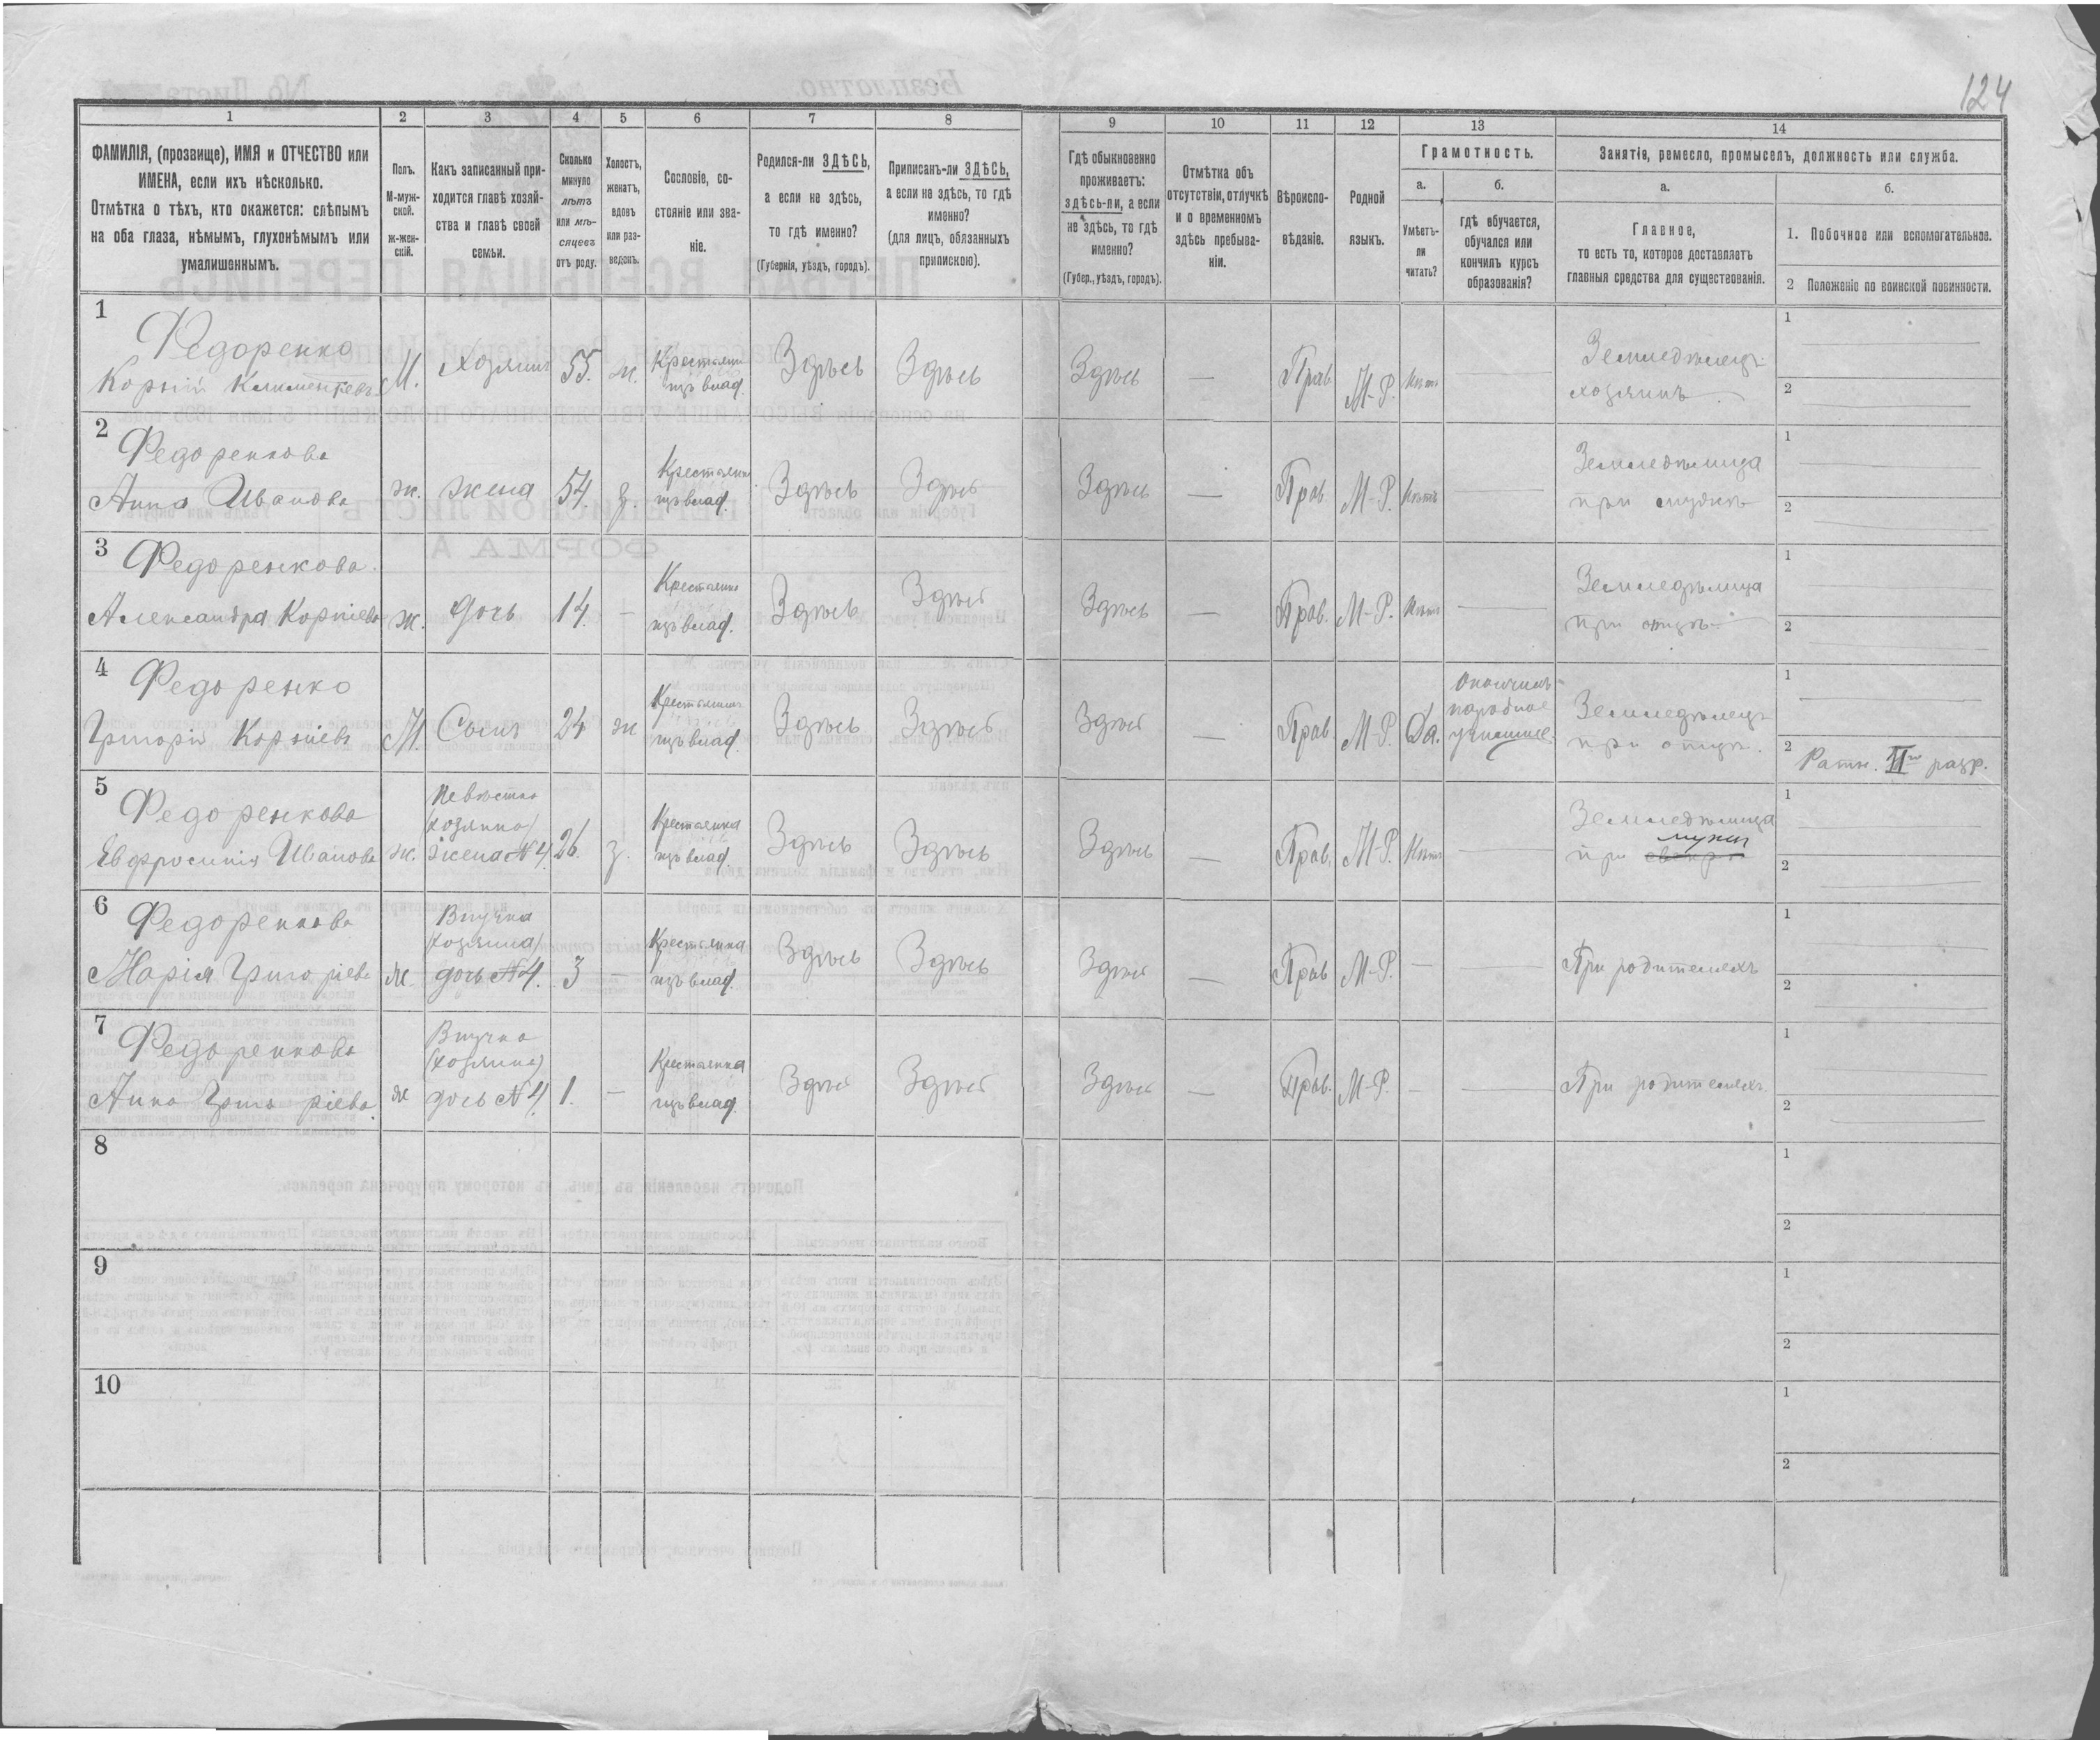 124
1
2
3
4
5
6
7
8
9
10
11
12
13
14
ФАМИЛІЯ, (прозвище), ИМЯ и ОТЧЕСТВО или
ИМЕНА, если ихъ нѣсколько.
Отмѣтка о тѣхъ, кто окажется: слѣпымъ
на оба глаза, нѣмымъ, глухонѣмымъ или
умалишеннымъ.
Полъ.
М-муж-
ской.
ж-жен-
скій.
Какъ записанный при-
ходится главѣ хозяй-
ства и главѣ своей
семьи.
Сколько
минуло
лѣтъ
или мѣ-
сяцевъ
отъ роду.
Холостъ,
женатъ,
вдовъ
или раз-
веденъ.
Сословіе, со-
стояніе или зва-
ніе.
Родился-ли ЗДѢСЬ,
а если не здѣсь,
то гдѣ именно?
(Губернія, уѣздъ, городъ).
Приписанъ-ли ЗДѢСЬ,
а если не здѣсь, то гдѣ
именно?
(для лицъ, обязанныхъ
припискою).
Гдѣ обыкновенно
проживаетъ:
здѣсь-ли, а если
не здѣсь, то гдѣ
именно?
(Губер., уѣздъ, городъ).
Отмѣтка объ
отсутствіи, отлучкѣ
и о временномъ
здѣсь пребыва-
ніи.
Вѣроиспо-
вѣданіе.
Родной
языкъ.
Грамотность.
а.
Умѣетъ-
ли
читать?
б.
Гдѣ обучается,
обучался или
кончилъ курсъ
образованія?
Занятіе, ремесло, промыселъ, должность или служба.
а.
Главное,
то есть то, которое доставляетъ
главныя средства для существованія.
б.
1. Побочное или вспомогательное.
2 Положеніе по воинской повинности.
1
Федоренко
Корній Климентьевъ
М.
хозяинъ
55.
ж.
Крестьянинъ
изъ влад.
Здѣсь
Здѣсь
Здѣсь
—
Прав.
М-Р.
Нѣтъ
Земледѣлецъ
хозяинъ
1
2
2
Федоренкова
Анна Иванова
ж.
жена
54.
з.
Крестьянка
изъ влад.
Здѣсь
Здѣсь
Здѣсь
—
Прав.
М-Р.
Нѣтъ
Земледѣлица
при мужѣ
1
2
3
Федоренкова
Александра Корніева
ж.
дочь
14.
—
Крестьянка
изъ влад.
Здѣсь
Здѣсь
Здѣсь
—
Прав.
М-Р.
Нѣтъ
Земледѣлица
при отцѣ
1
2
4
Федоренко
Григорій Корніевъ
М.
Сынъ
24
ж
Крестьянинъ
изъ влад.
Здѣсь
Здѣсь
Здѣсь
—
Прав.
М-Р.
Да.
Окончилъ
народное
училище.
Земледѣлецъ
при отцѣ.
1
2
Ратн. IIго разр.
5
Федоренкова
Евфросинія Иванова
ж.
Невѣстка
(хозяина)
жена №4.
26.
з.
Крестьянка
изъ влад.
Здѣсь
Здѣсь
Здѣсь
—
Прав.
М-Р.
Нѣтъ
Земледѣлица
мужѣ
при свекрѣ
1
2
6
Федоренкова
Марія Григоріева
ж.
Внучка
(хозяина)
дочь №4.
3
—
Крестьянка
изъ влад.
Здѣсь
Здѣсь
Здѣсь
—
Прав
М-Р.
—
При родителяхъ
1
2
7
Федоренкова
Анна Григоріева.
ж
Внучка
(хозяина)
дочь №4.
1.
—
Крестьянка
изъ влад.
Здѣсь
Здѣсь
Здѣсь
—
Прав.
М-Р.
—
При родителяхъ
1
2
8
1
2
9
1
2
10
1
2